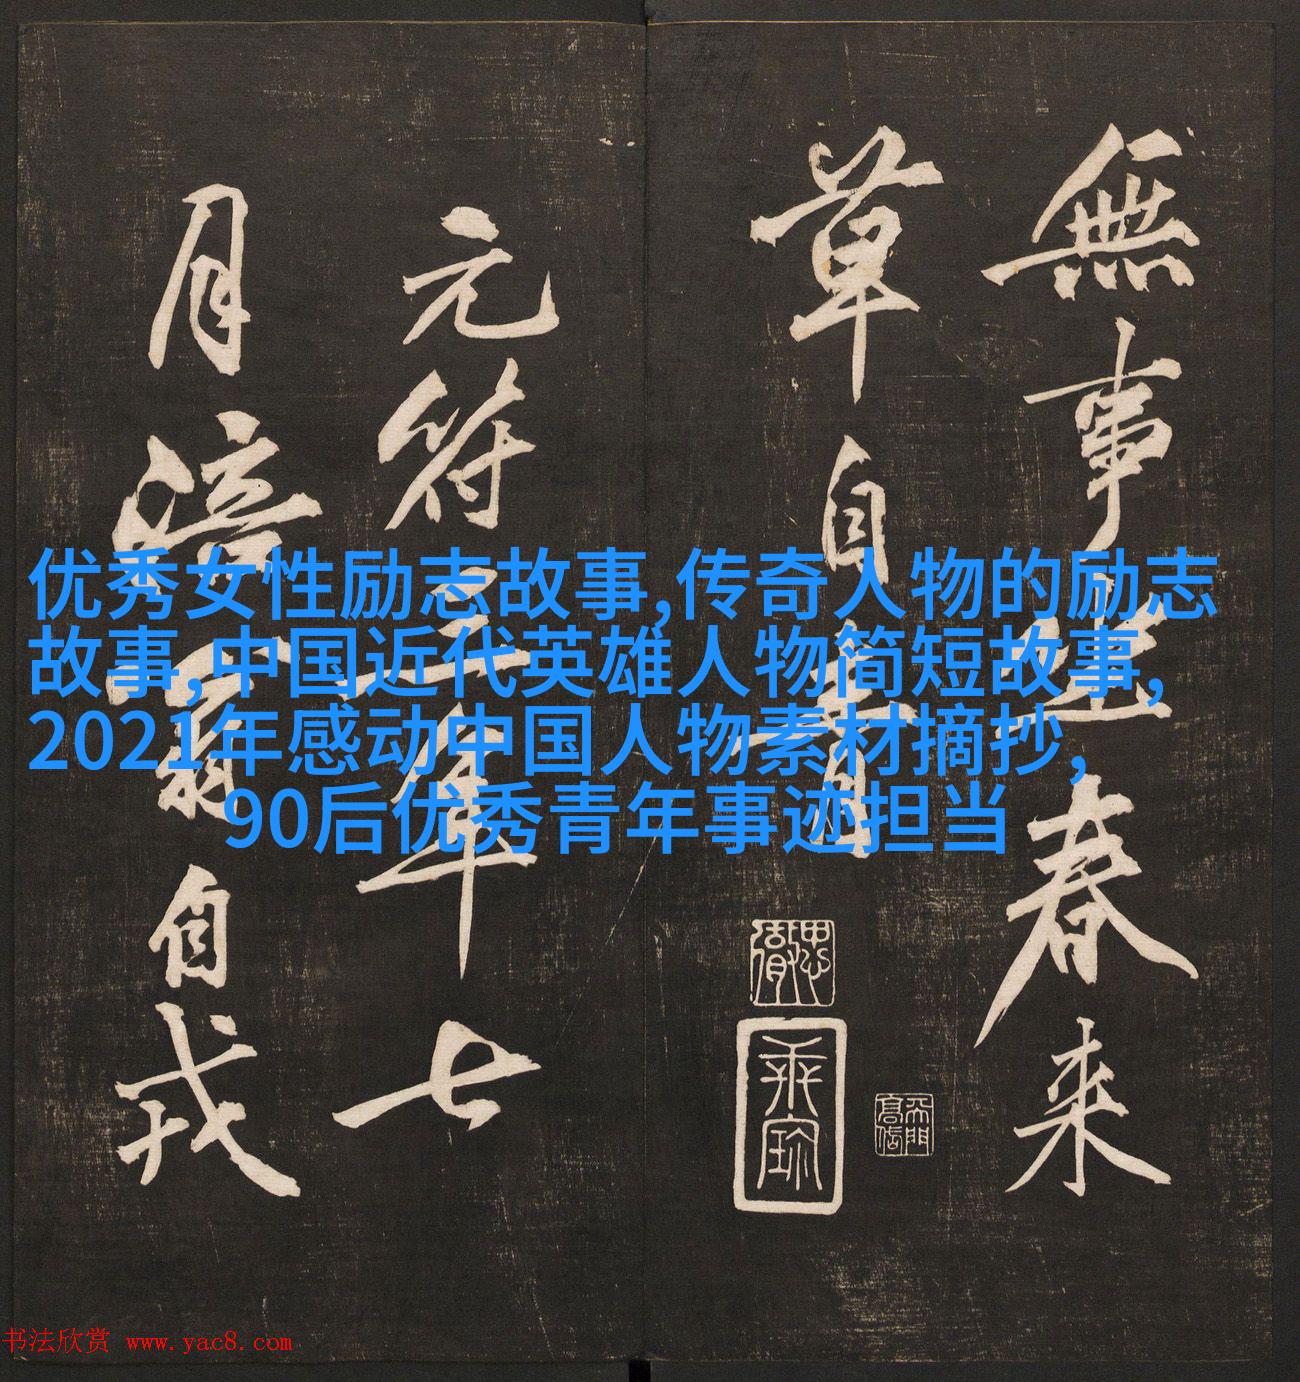 無事坐春来
草自青
元符三年七
月涪翁自戎
优秀女性励志故事,传奇人物的励志
故事,中国近代英雄人物简短故事,
2021年感动中国人物素材摘抄,
90后优秀青年事迹担当
书法欣赏 www.yac8.com